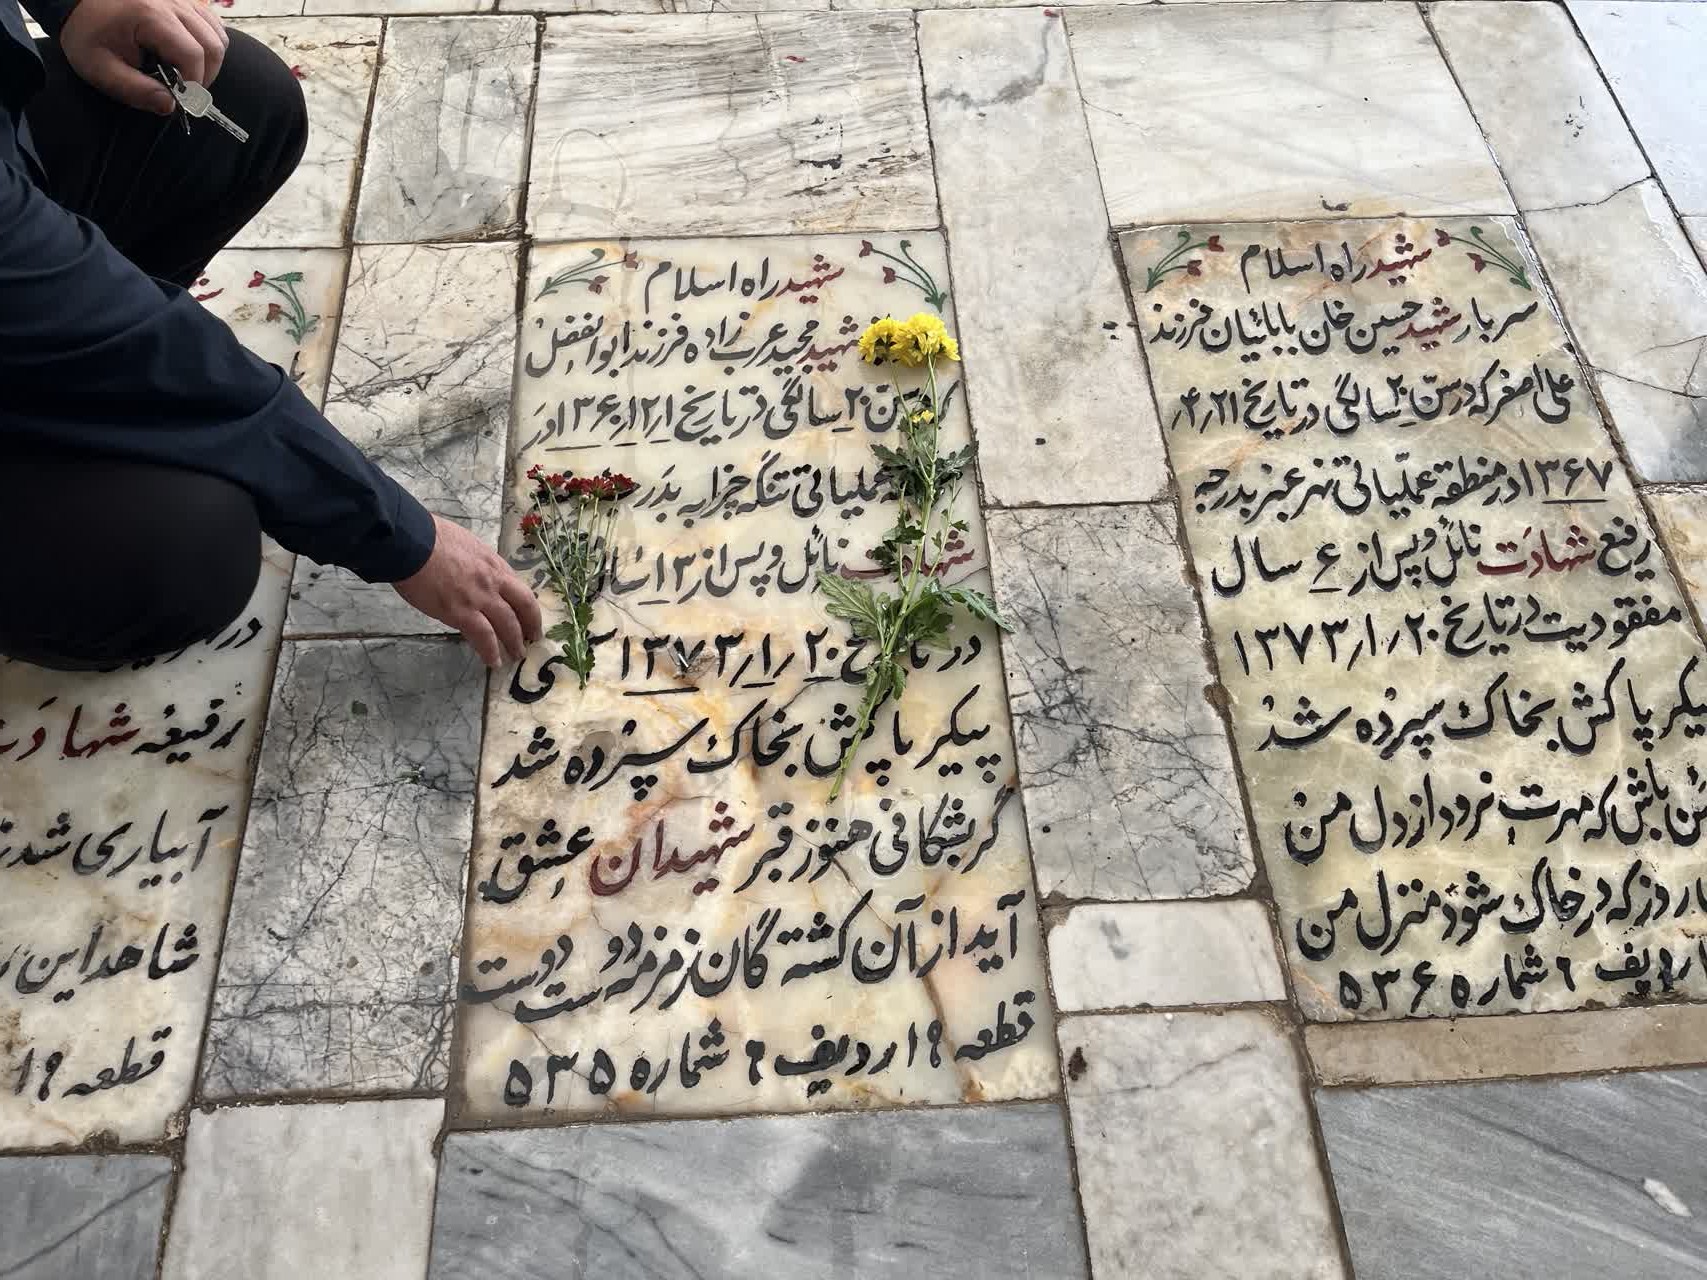 شهید راه اسلام
سرباز شهید حسین خان بابائیان فرزند
علی اصغر که در سنّ ۲۰ سالگی در تاریخ ۲۱ر۴ر
۱۳۶۷ در منطقه عملیاتی نهر عنبر بدرجه
رفیع شهادت نائل و پس از ۶ سال
مفقودیت در تاریخ ۲۰ر۱ر۱۳۷۳
پیکر پاکش بخاک سپرده شد
باش که مهرت نرود از دل من
روز که در خاک شود منزل من
ردیف ۶ شماره ۵۳۶
شهید راه اسلام
شهید مجید عرب زاده فرزند ابوالفضل
سنّ ۲۰ سالگی در تاریخ ۱ر۱۲ر۱۳۶۰ در
عملیاتی تنگه چزابه بدر
شهادت نائل و پس از ۱۳ سال
در تاریخ ۲۰ر۱ر۱۳۷۳
پیکر پاکش بخاک سپرده شد
گر بشکافی هنوز قبر شهیدان عشق
آید از آن کشته گان زمزمه دوست دوست
قطعه ۱۹ ردیف ۶ شماره ۵۳۵
در
رفیعه شهادت
آبیاری شد
شاهد این
قطعه ۱۹